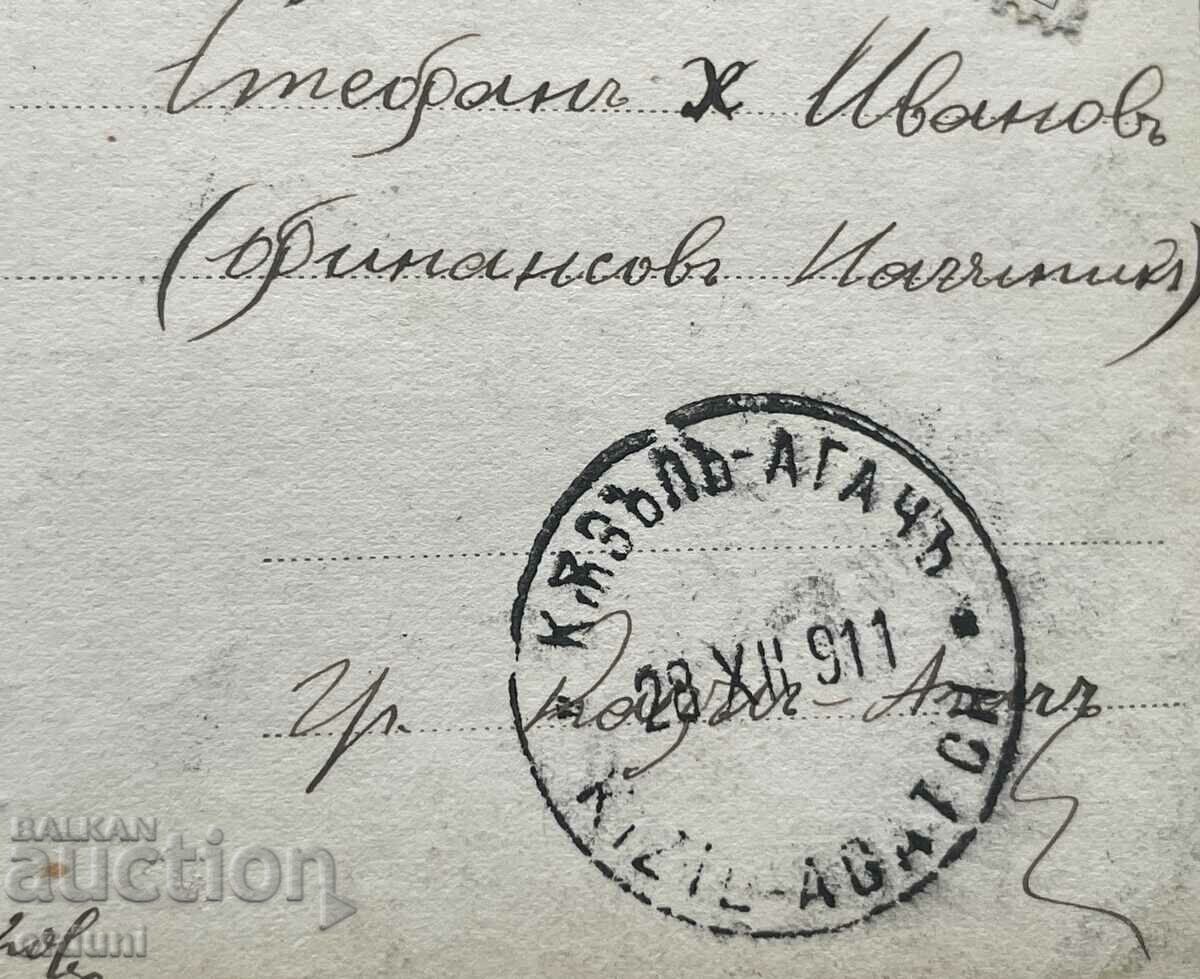 Стефанъ х Ивановъ
(Финансовъ Начлникъ)
КѪЗЪЛЪ-АГАЧЪ
28 XII 911
Гр. Казълъ-Агачъ
KIZIL-AGATCH
BALKAN
auction